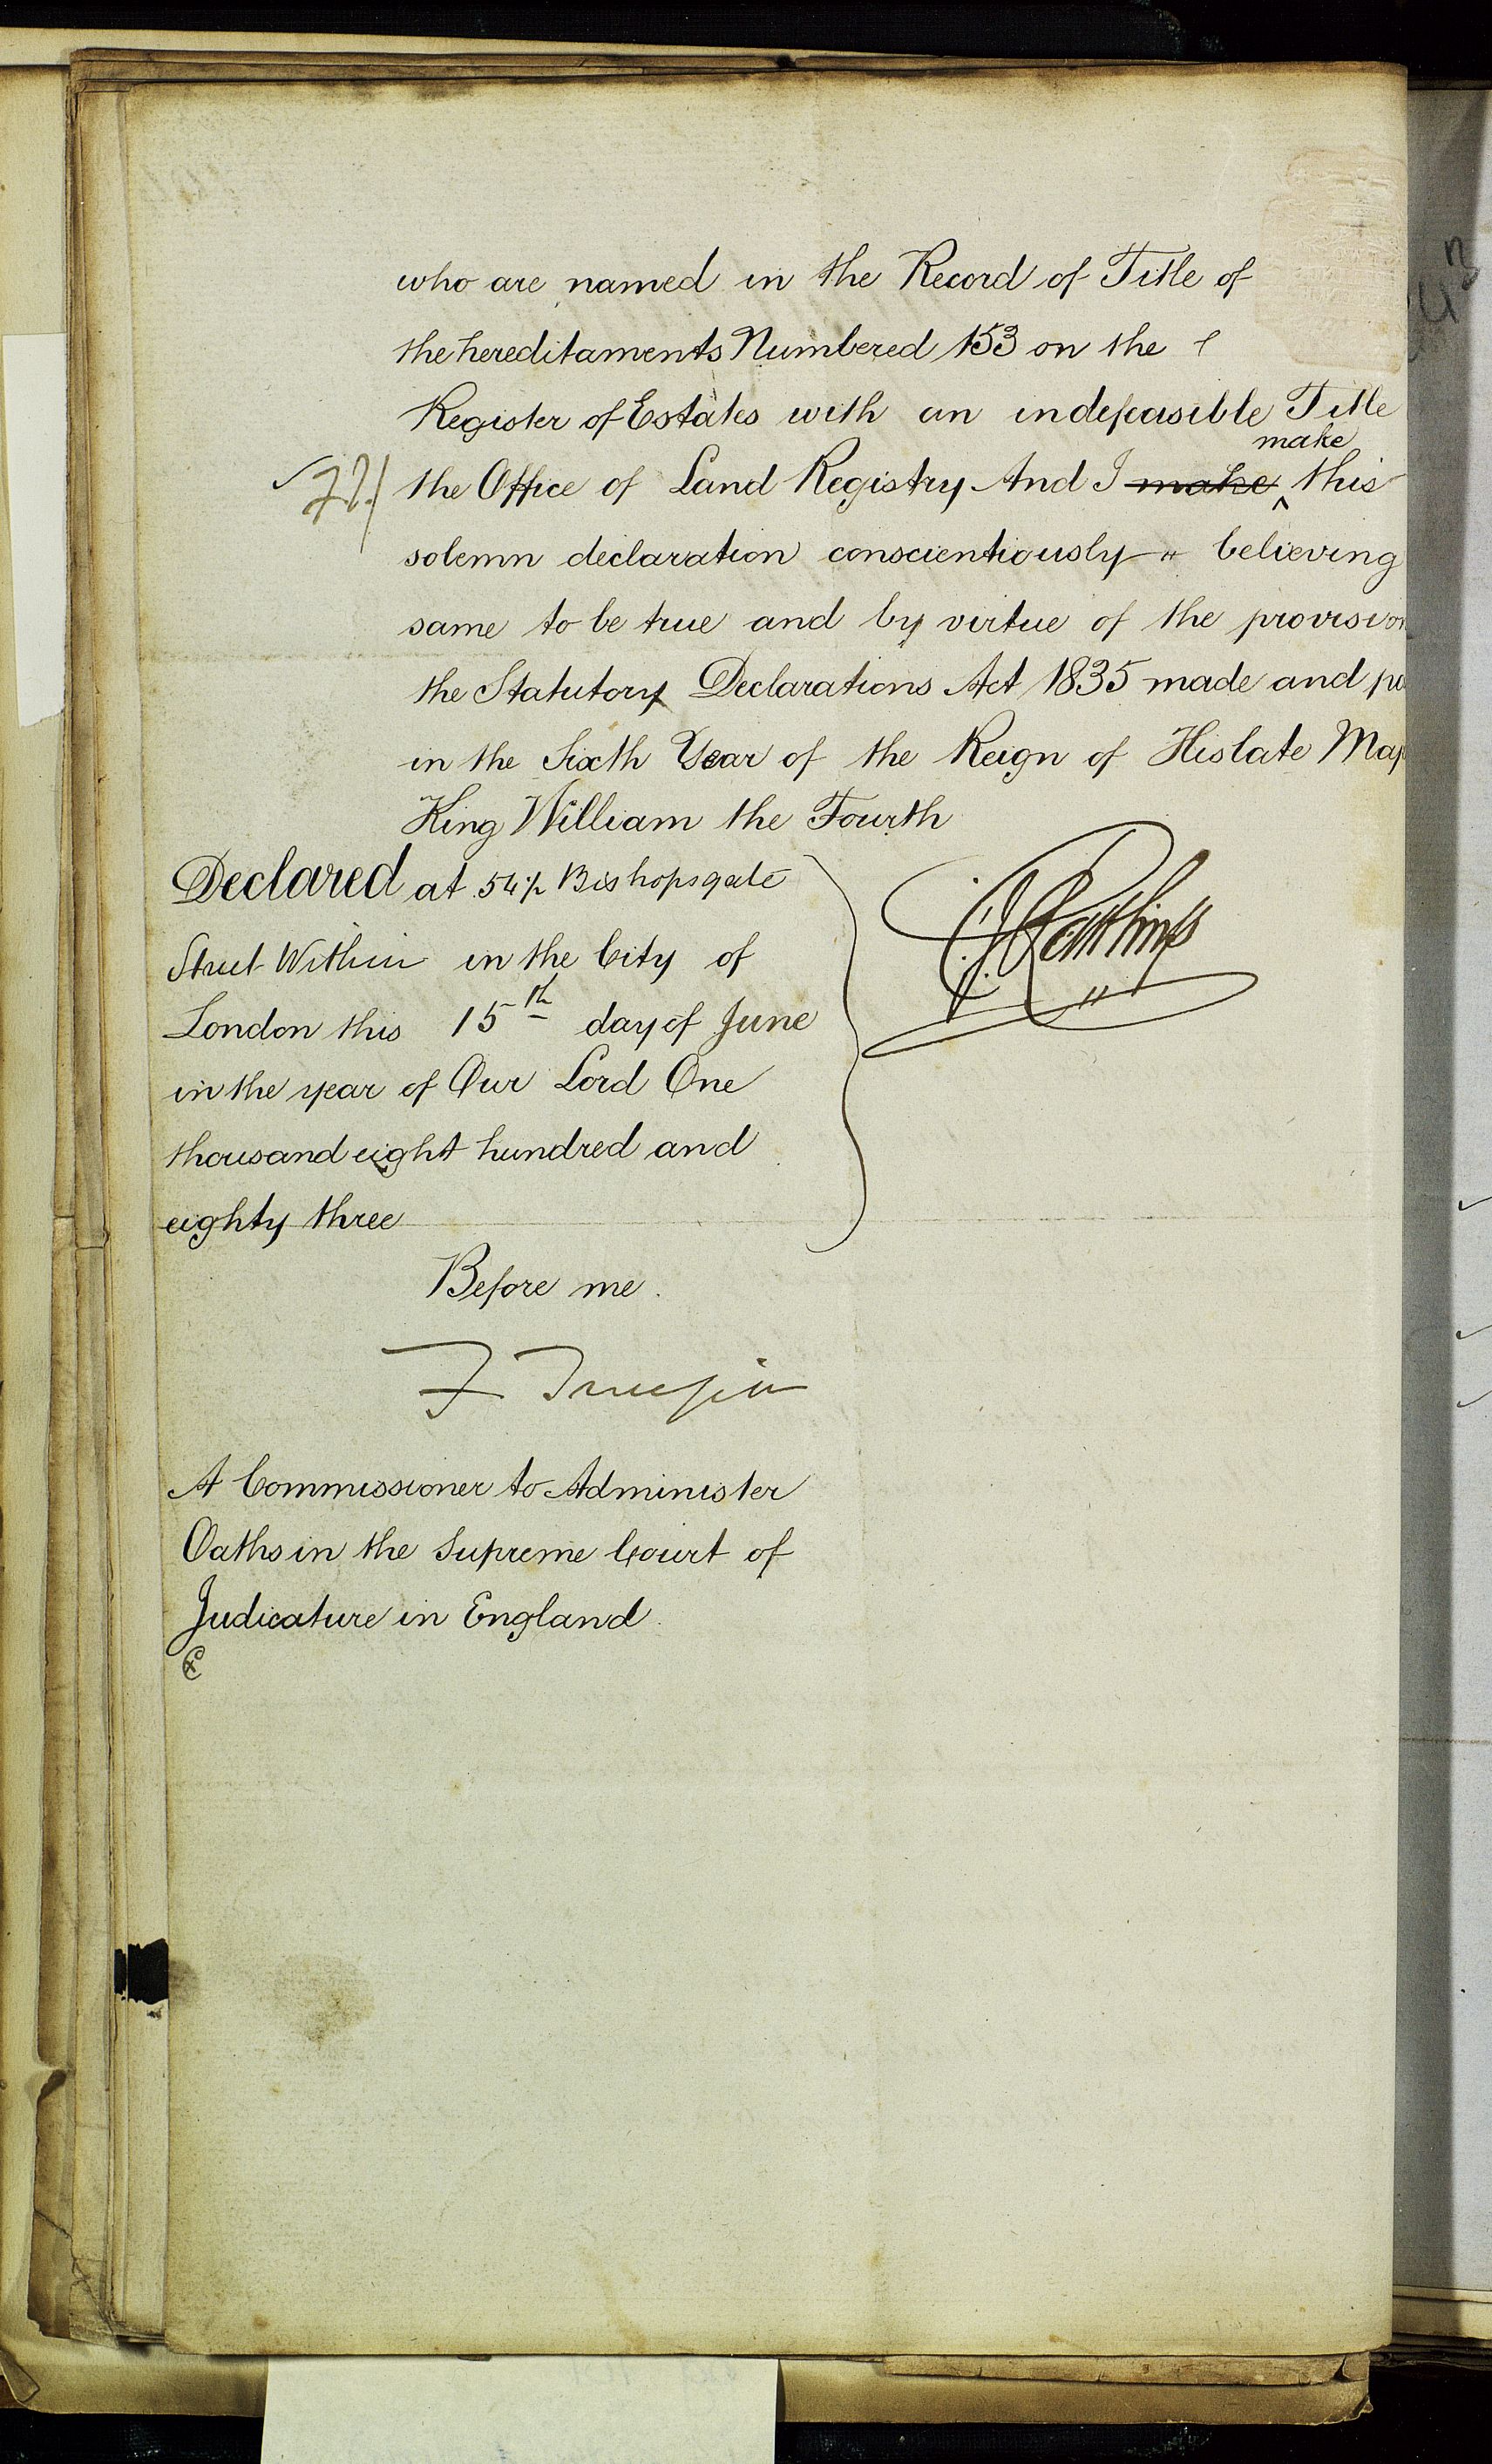 who are named in the Record of Title of
the hereditaments Numbered 153 on the
Register of Estates with an indefeasible Title
make
the Office of Land Registry And I make this
solemn declaration conscientiously believing
same to be true and by virtue of the provision
the Statutory Declarations Act 1835 made and
in the Sixth Year of the Reign of His late Maj
King William the Fourth
Declared at 54½ Bishopsgate
Street Within in the City of
London this 15th day of June
in the year of Our Lord One
thousand eight hundred and
eighty three
Before me.
A Commissioner to Administer
Oaths in the Supreme Court of
Judicature in England